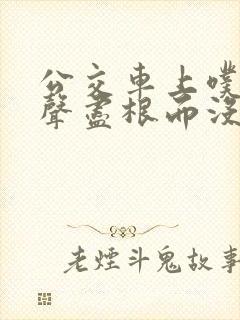 公交車上噗
聲盡根而沒
老煙斗鬼故事